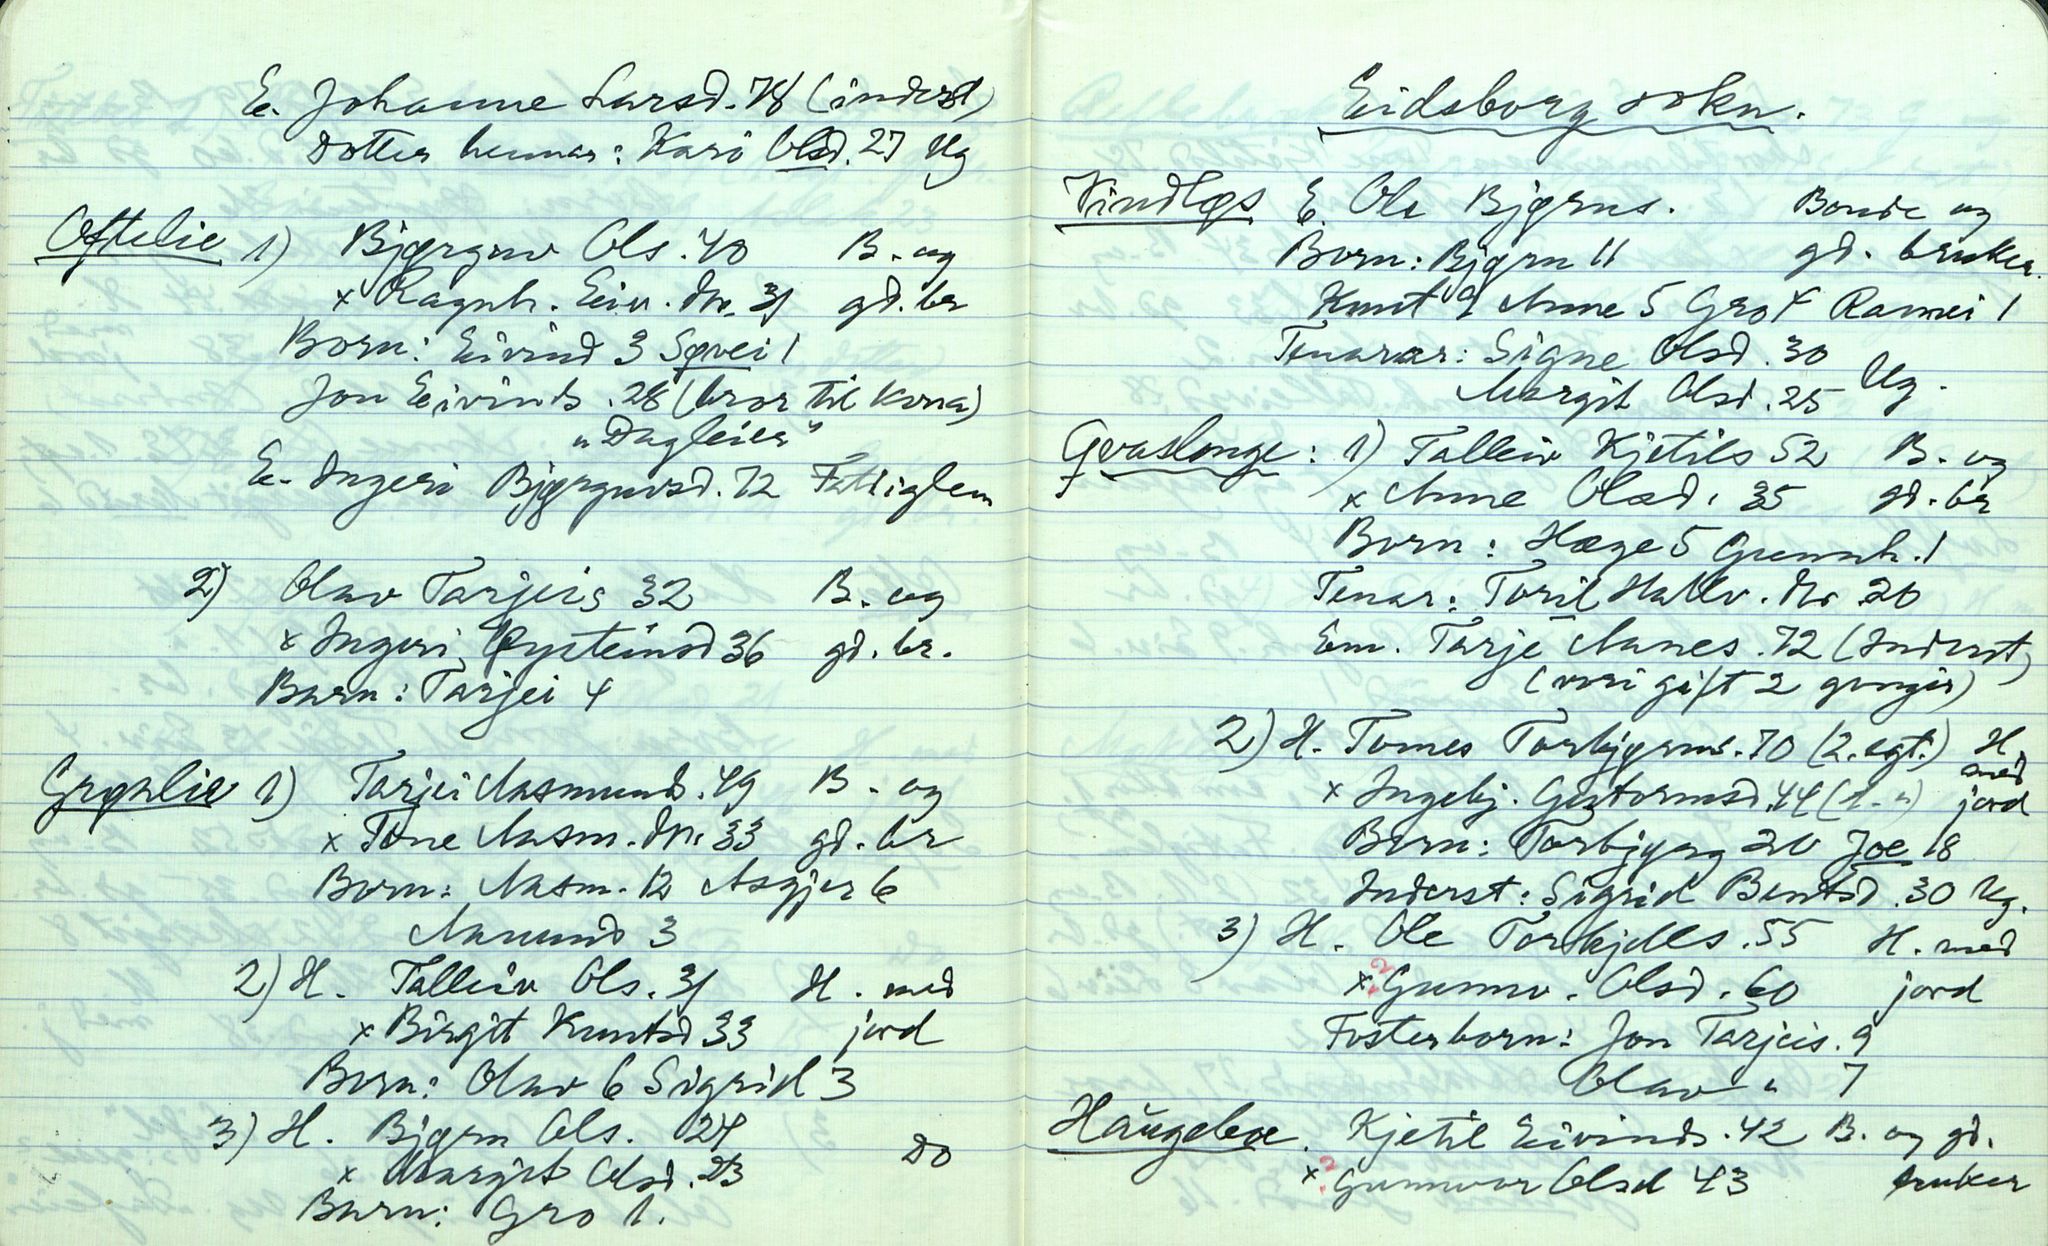 E. Johanne Larsd. 78 (inderst)
Dotter hennar: Kari Olsd. 27 Ug
Oftelie 1) Bjørguv Ols. 40 B. og
x Ragnh. Eiv. dtr. 31 gd. br
Born: Eivind 3 Søvei 1
Jon Eivinds. 28 (bror til kona)
"Dagleier"
E. Ingeri Bjørguvsd. 72 Fattiglem
2) Olav Tarjeis 32 B. og
x Ingeri Øysteinsd 36 gd. br.
Barn: Tarjei 4
Grønlie 1) Tarjei Aasmunds. 49 B. og
x Tone Aasm. dtr. 33 gd. br
Born: Aasm. 12 Asgjer 6
Aanund 3
2) H. Talleiv Ols. 31 H. med
x Birgit Kuntsd 33 jord
Born: Olav 6 Sigrid 3
3) H. Bjørn Ols. 24 Do
x Margit Olsd. 23
Barn: Gro 1.
Eidsborg sokn.
Vindløs E. Ole Bjørns. Bonde og
Born: Bjørn 11 gd. bruker.
Knut 9 Anne 5 Gro 4 Ramei 1
Tenarar: Signe Olsd. 30
Margit Olsd. 25 Ug.
Qvaslonge: 1) Talleiv Kjetils 52 B. og
x Anne Olsd. 35 gd. br
Born: Hæge 5 Gunnh. 1
Tenar: Toril Hallv. dtr. 20
Em. Tarje Aanes. 72 (Inderst)
(vori gift 2 gonger)
2) H. Tomes Torbjørns. 70 (2. egt.) H. med
x Ingebj. Gutormsd. 44 (1. ") jord
Born: Torbjørg 20 Joe 18
Inderst: Sigrid Bentsd. 30 Ug.
3) H. Ole Torkjells. 55 H. med
x Gunnv. Olsd. 60 jord
Fosterborn: Jon Tarjeis. 9
Olav " 7
Haugebæ. Kjetil Eivinds. 42 B. og gd.
x Gunnvor Olsd 43 bruker